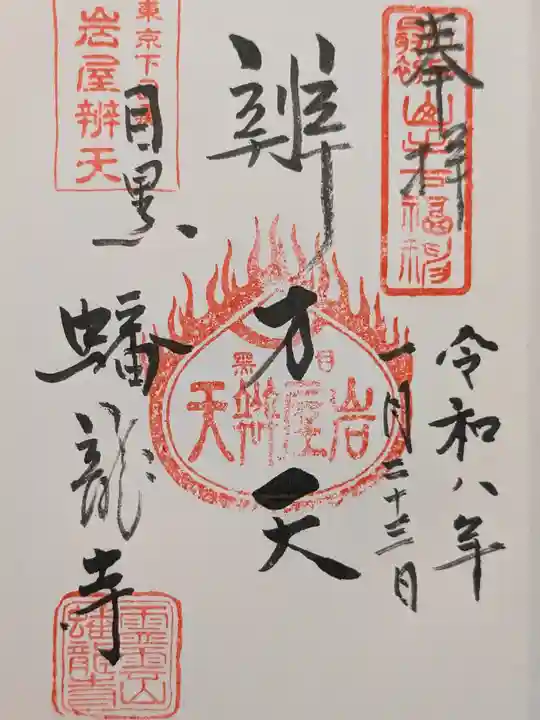 奉拝
令和八年
一月二十三日
辨才天
目黒
岩屋辨天
目黒
蟠龍寺
東京下
岩屋辨天
霊雲山
蟠龍寺